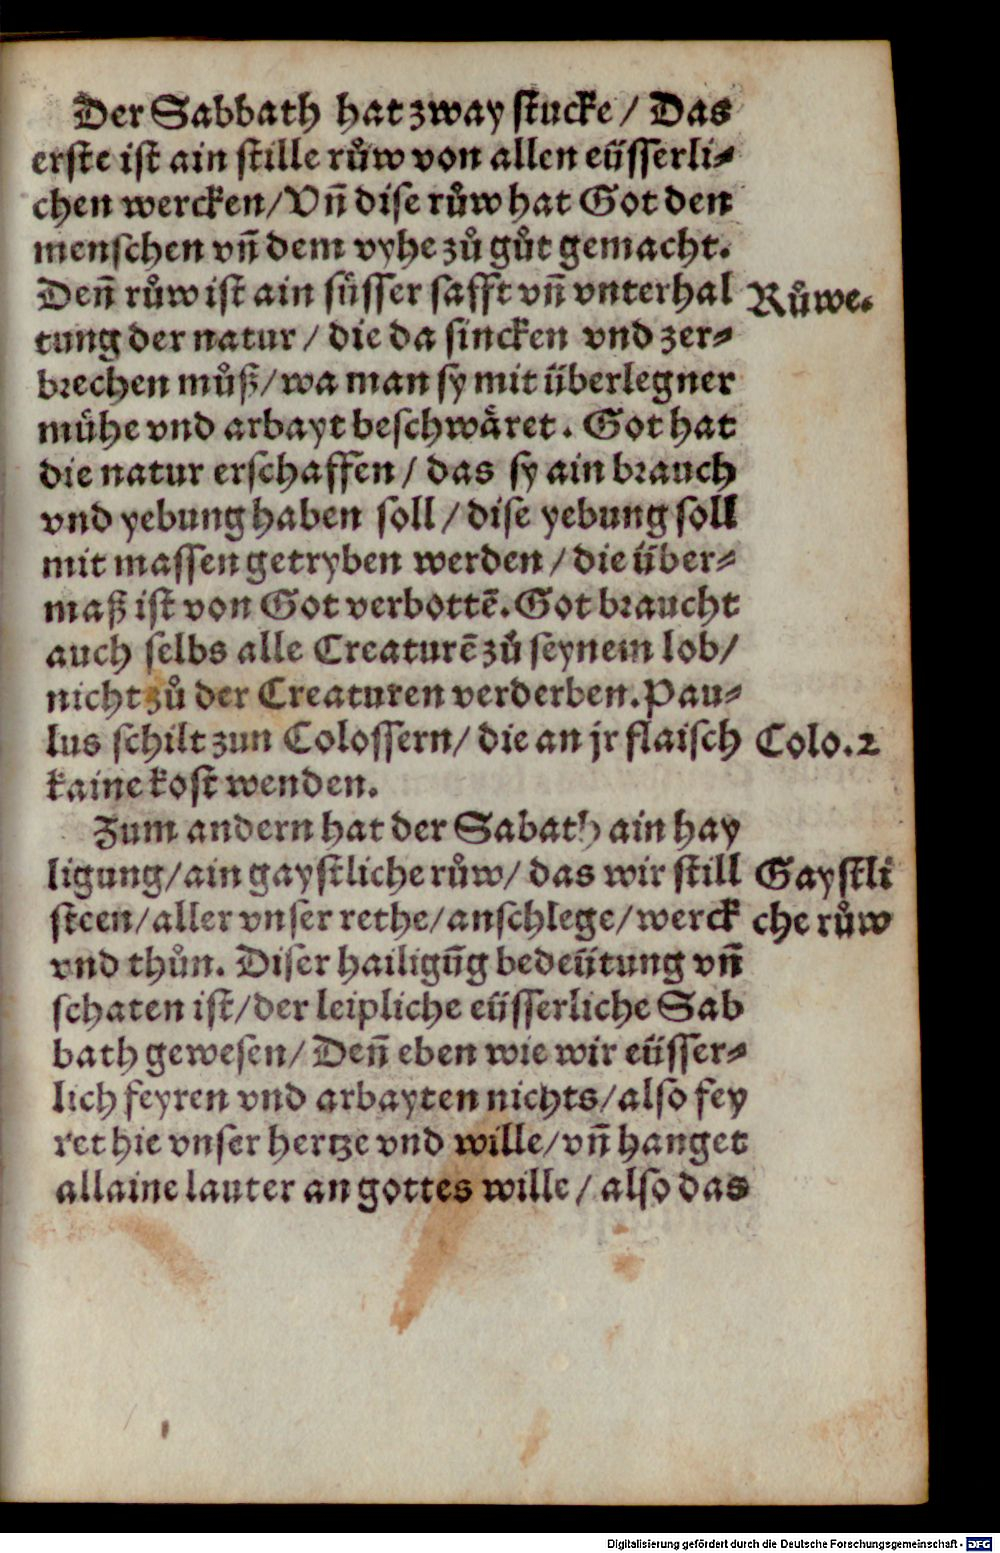 Der Sabbath hat zway stucke / Das
erste ist ain stille růw von allen eüsserli⸗
chen wercken/Vn̄ dise růw hat Got den
menschen vn̄ dem vyhe zů gůt gemacht.
Den̄ růw ist ain süsser safft vn̄ vnterhal
Růwe.
tung der natur / die da sincken vnd zer⸗
brechen můß/wa man sy mit überlegner
mühe vnd arbayt beschwäret. Got hat
die natur erschaffen / das sy ain brauch
vnd yebung haben soll / dise yebung soll
mit massen getryben werden / die über⸗
maß ist von Got verbottē. Got braucht
auch selbs alle Creaturē zů seynem lob/
nicht zů der Creaturen verderben. Pau⸗
lus schilt zun Colossern/ die an jr flaisch
Colo. 2
kaine kost wenden.
Zum andern hat der Sabath ain hay
ligung/ain gaystliche růw/ das wir still
Gaystli
steen/aller vnser rethe/anschlege/werck
che růw
vnd thůn. Diser hailigūg bedeütung vn̄
schaten ist/der leipliche eüsserliche Sab
bath gewesen/ Den̄ eben wie wir eüsser⸗
lich feyren vnd arbayten nichts/also fey
ret hie vnser hertze vnd wille/vn̄ hanget
allaine lauter an gottes wille / also das
Digitalisierung gefördert durch die Deutsche Forschungsgemeinschaft - DFG